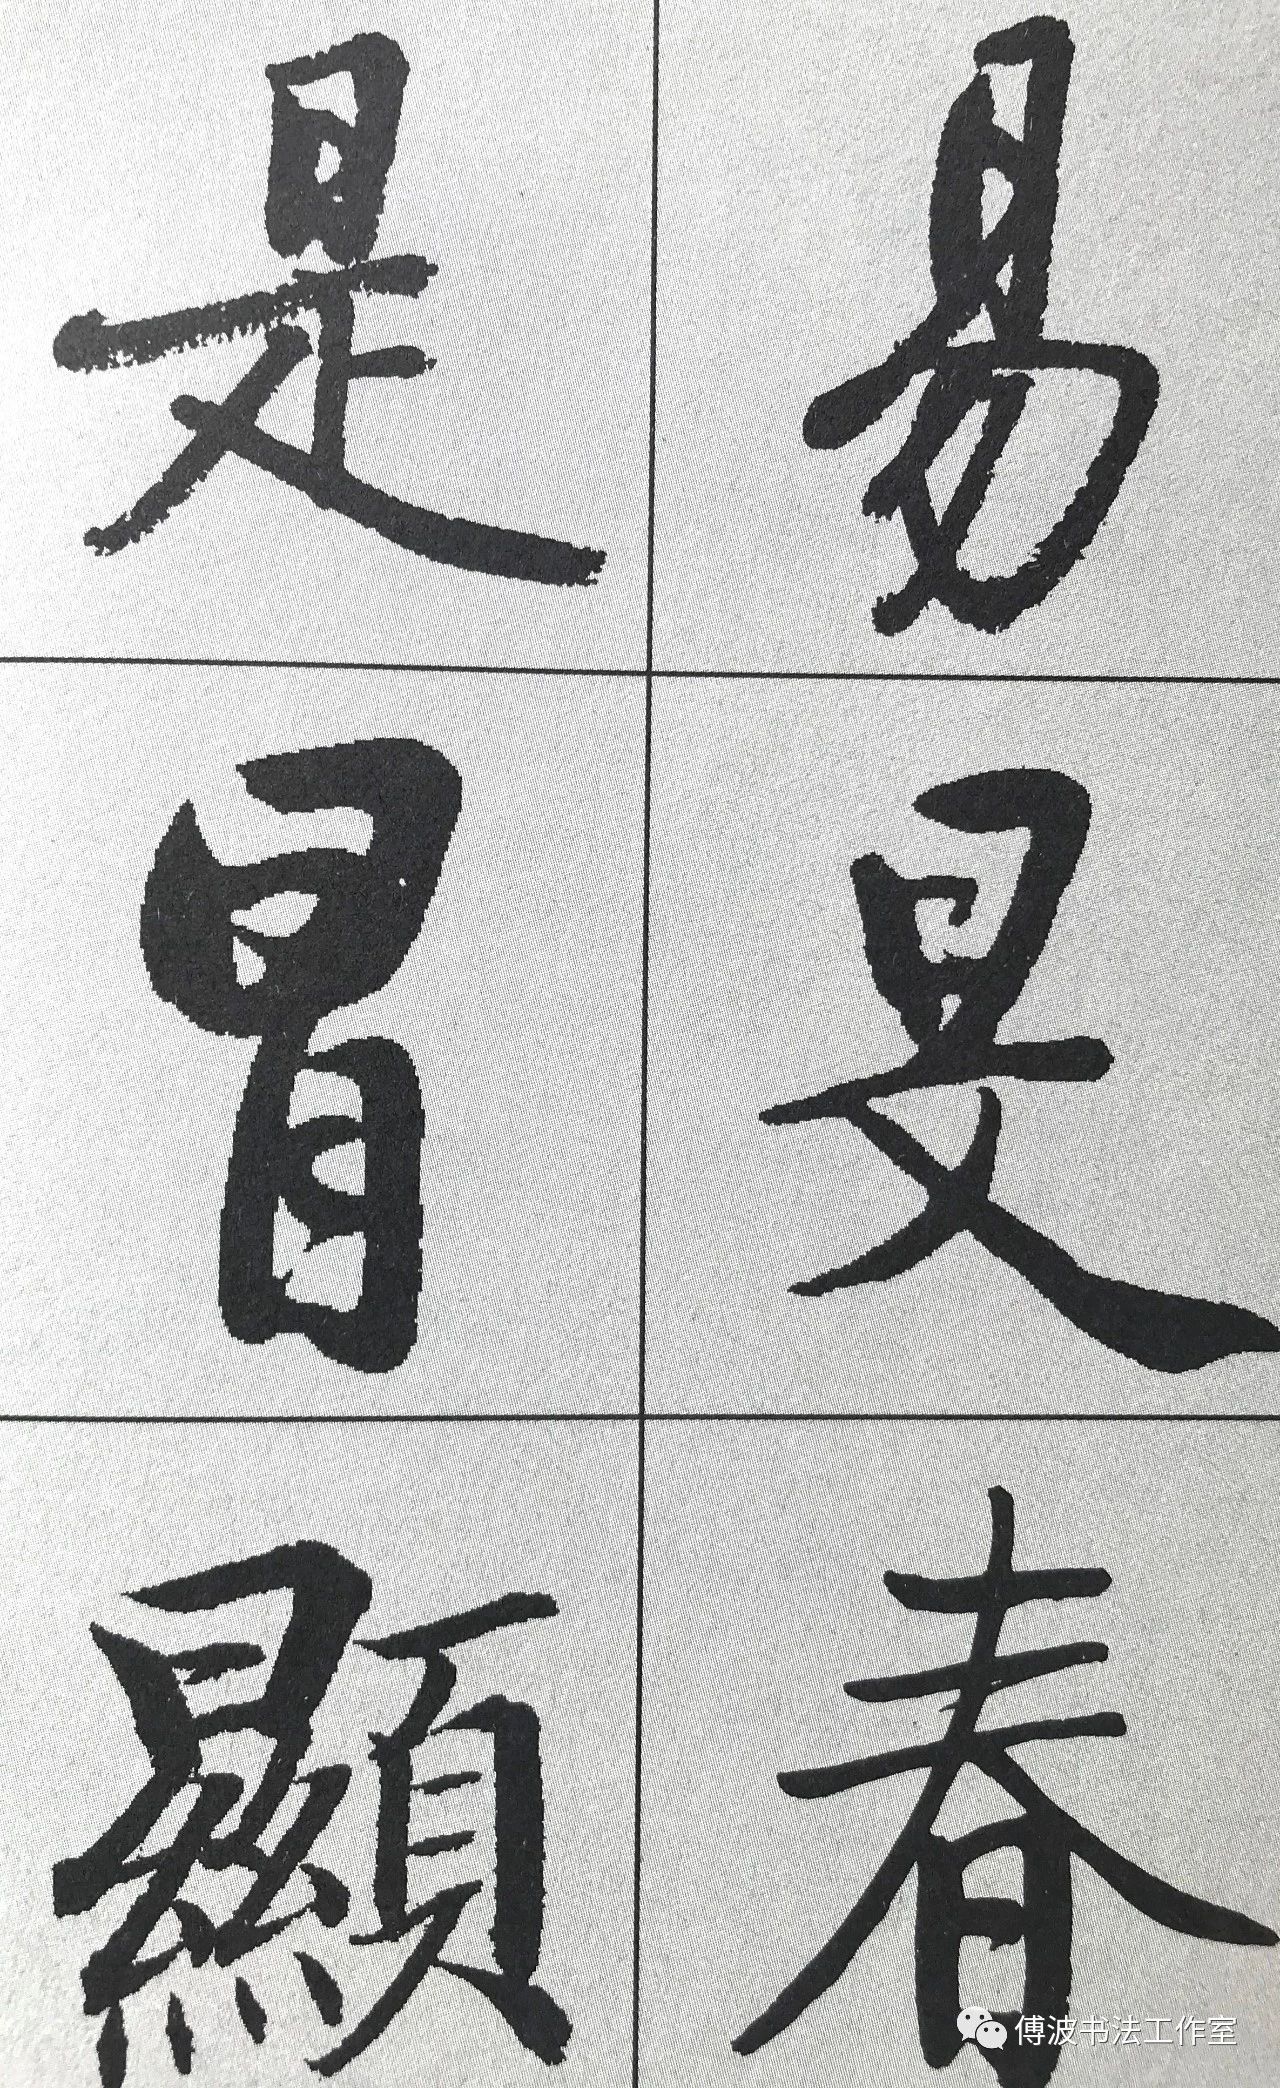 是 易
冒 是
顯 春
傅波书法工作室